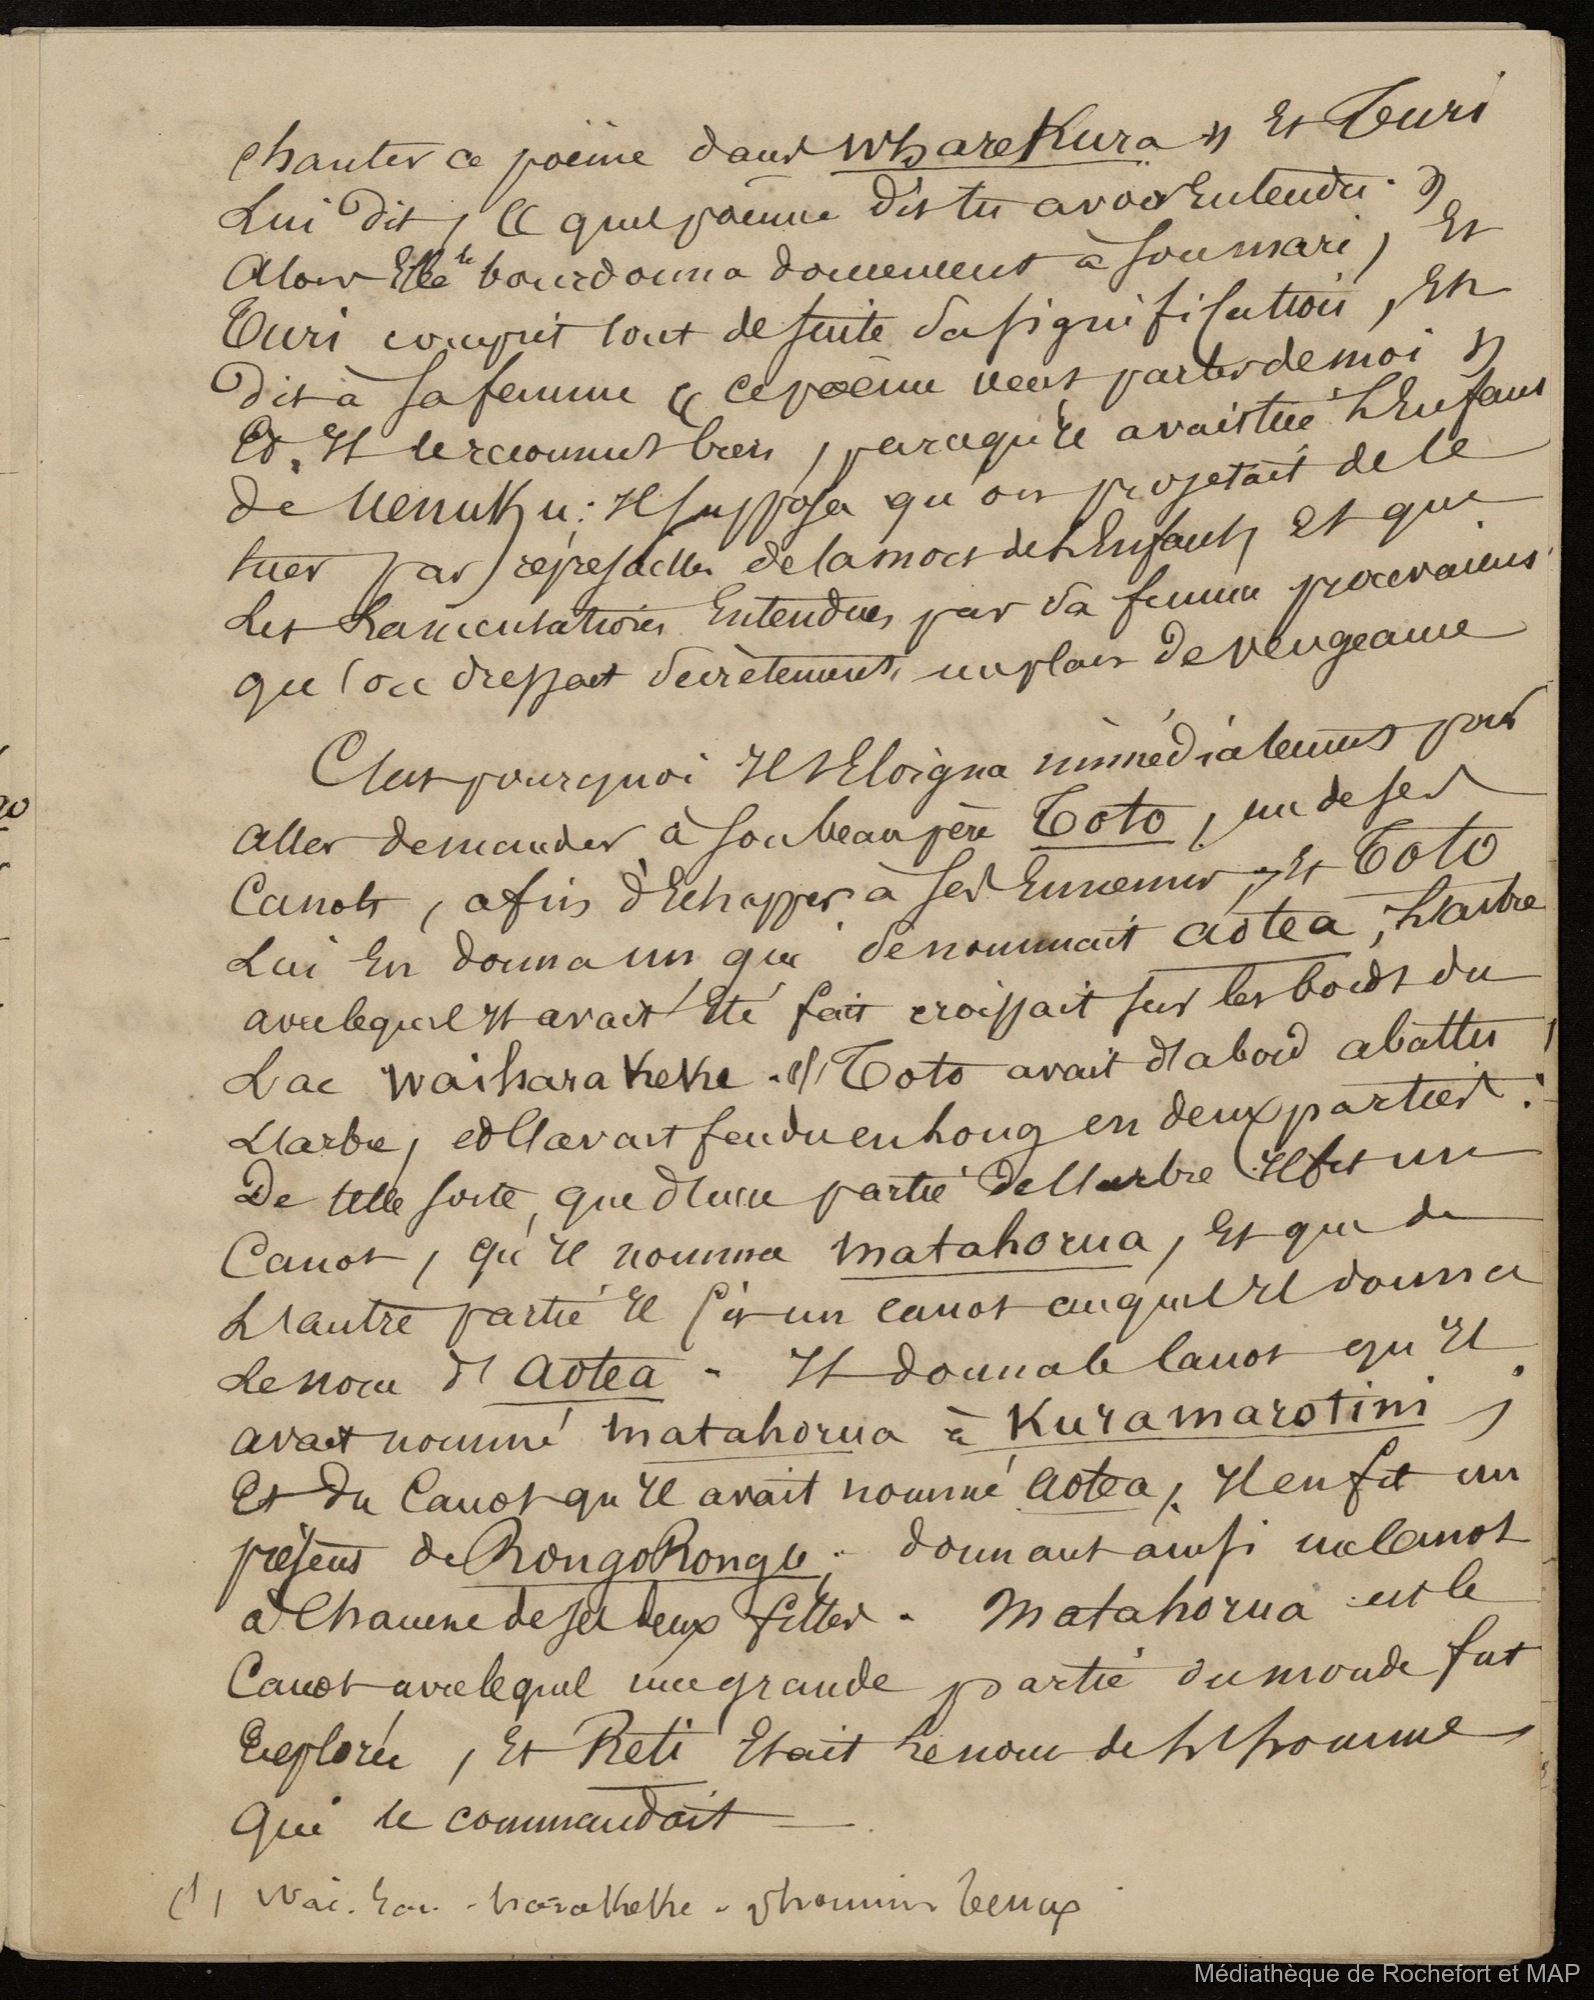 chanter ce poëme dans Wharekura » Et Turi
Lui dit, « quel poëme dis tu avoir Entendu. »
Alors Elle le bourdonna doucement à son mari, Et
Turi comprit tout de suite sa signification, Et
Dit à sa femme « ce poëme veut parler de moi »
Et Il le reconnut bien, parcequ'il avait tué L'Enfant
de Uenuku : Il supposa qu'on projetait de le
tuer par représailles de la mort de L'Enfant, Et que
Les Lamentations Entendues par sa femme prouvaient
qu'on dressait secrètement, un plan de vengeance
C'est pourquoi Il s'Eloigna immédiatement pour
Aller demander à son beau père Toto, un de ses
Canots, afin d'Echapper à ses Ennemis, Et Toto
Lui En donna un qui se nommait Aotea, L'arbre
avec lequel Il avait Eté fait croissait sur les bords du
Lac Waiharakeke. (1) Toto avait d'abord abattu
L'arbre, et l'avait fendu en long en deux parties :
De telle sorte, que d'une partie de l'arbre Il fit un
Canot, qu'Il nomma Matahorua, Et que de
L'autre partie Il fit un canot auquel Il donna
Le nom d'Aotea. Il donna le canot qu'Il
avait nommé Matahorua à Kuramarotini ;
Et du Canot qu'Il avait nommé Aotea, Il en fit un
présent de RongoRongo ; donnant ainsi un canot
à Chacune de ses deux filles. Matahorua est le
Canot avec lequel une grande partie du monde fut
Explorée, Et Reti Etait Le nom de L'homme
Qui le commandait
(1) Wai. Eau. harakeke. phormium tenax